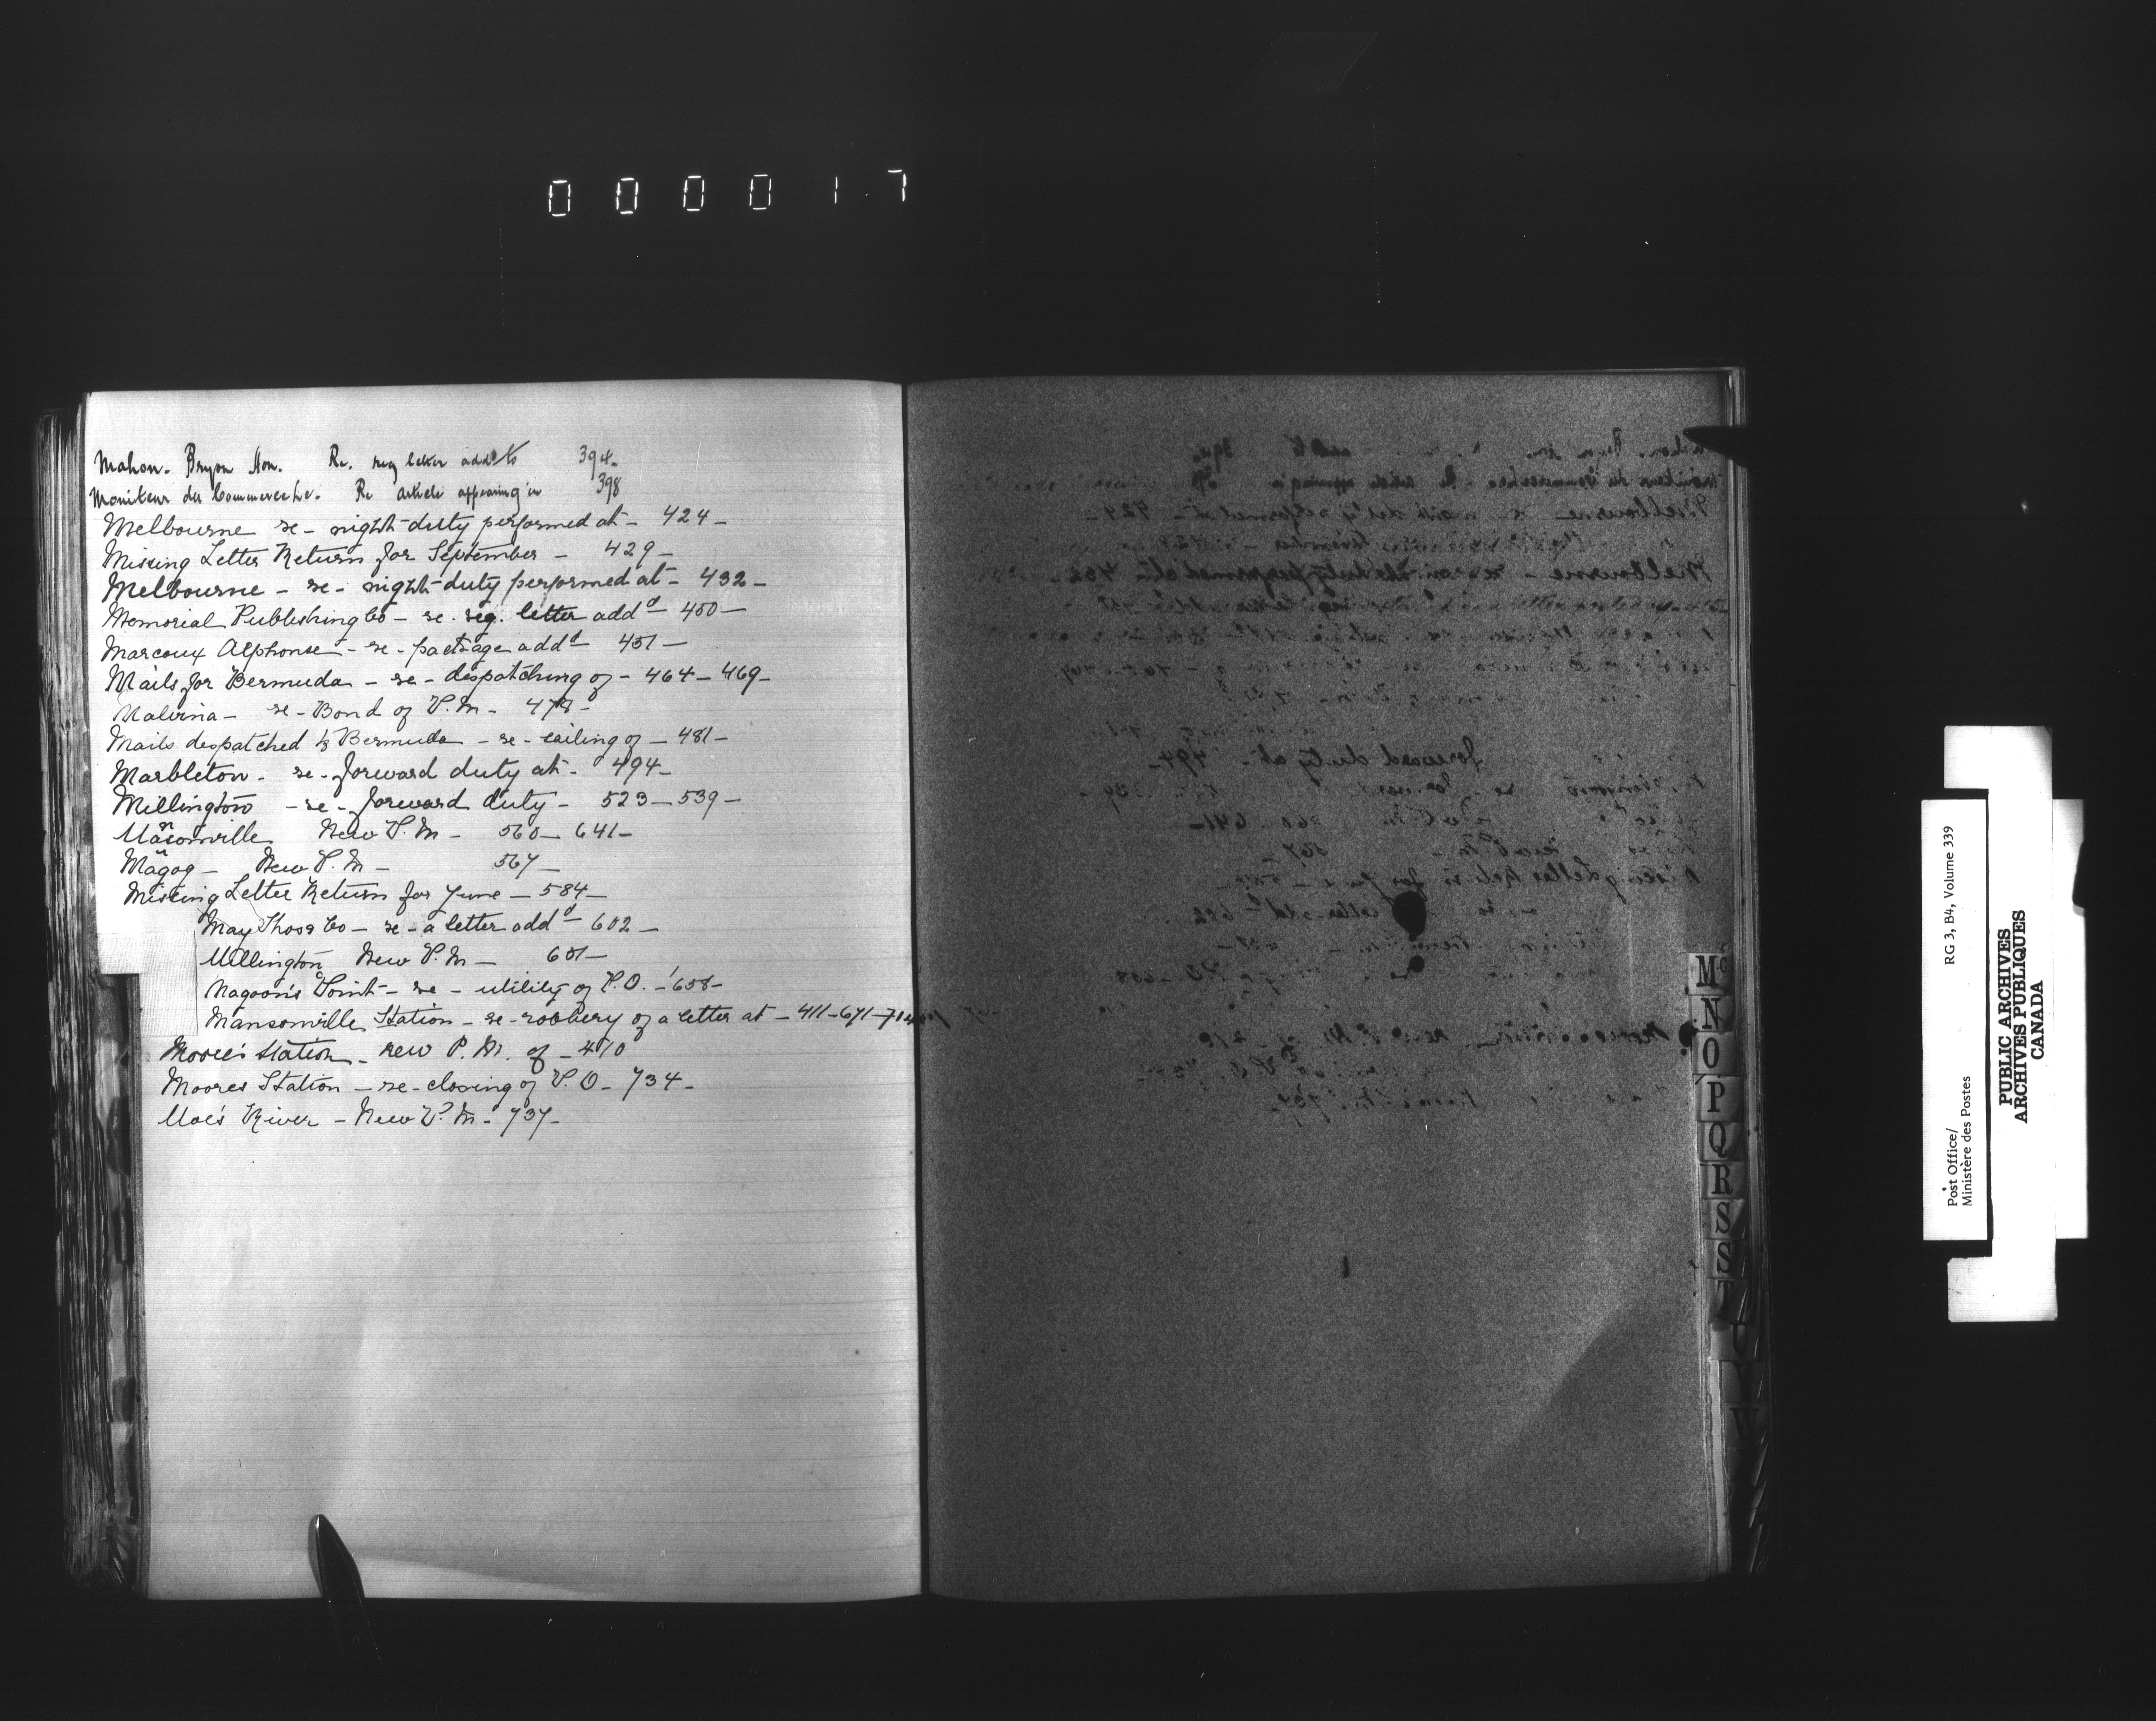 000017
Mahon. Bryon Hon. Re. reg letter addd to 394-
Moniteur du Commerce &c. Re article appearing in 398
Melbourne re- night-duty performed at- 424-
Missing Letter Return for September - 429-
Melbourne - re- night-duty performed at- 432-
Memorial Publishing Co - re. reg. letter addd - 450-
Marcoux Alphonse - re- package addd - 451-
Mails for Bermuda - re- dispatching of - 464-469-
Malvina - re- Bond of P.M- 478-
Mails despatched to Bermuda - re- sailing of - 481-
Marbleton - re- forward duty at- 494-
Millington - re- forward duty - 523-539-
Mansonville New P.M- 560-641-
Magog - New P.M- 567-
Missing Letter Return for June - 584-
May Thos & Co - re- a letter addd - 602-
Millington New P.M- 651-
Magoon's Point - re- utility of P.O. - 658-
Mansonville Station - re- robbery of a letter at - 411-671-714
Moore's Station - new P.M. of - 410
Moores Station - re- closing of P.O- 734-
Moe's River - New P.M- 737-
Mc
N
O
P
Q
R
S
S
T
U
V
W
RG 3, B4, Volume 339
Post Office/
Ministère des Postes
PUBLIC ARCHIVES
ARCHIVES PUBLIQUES
CANADA